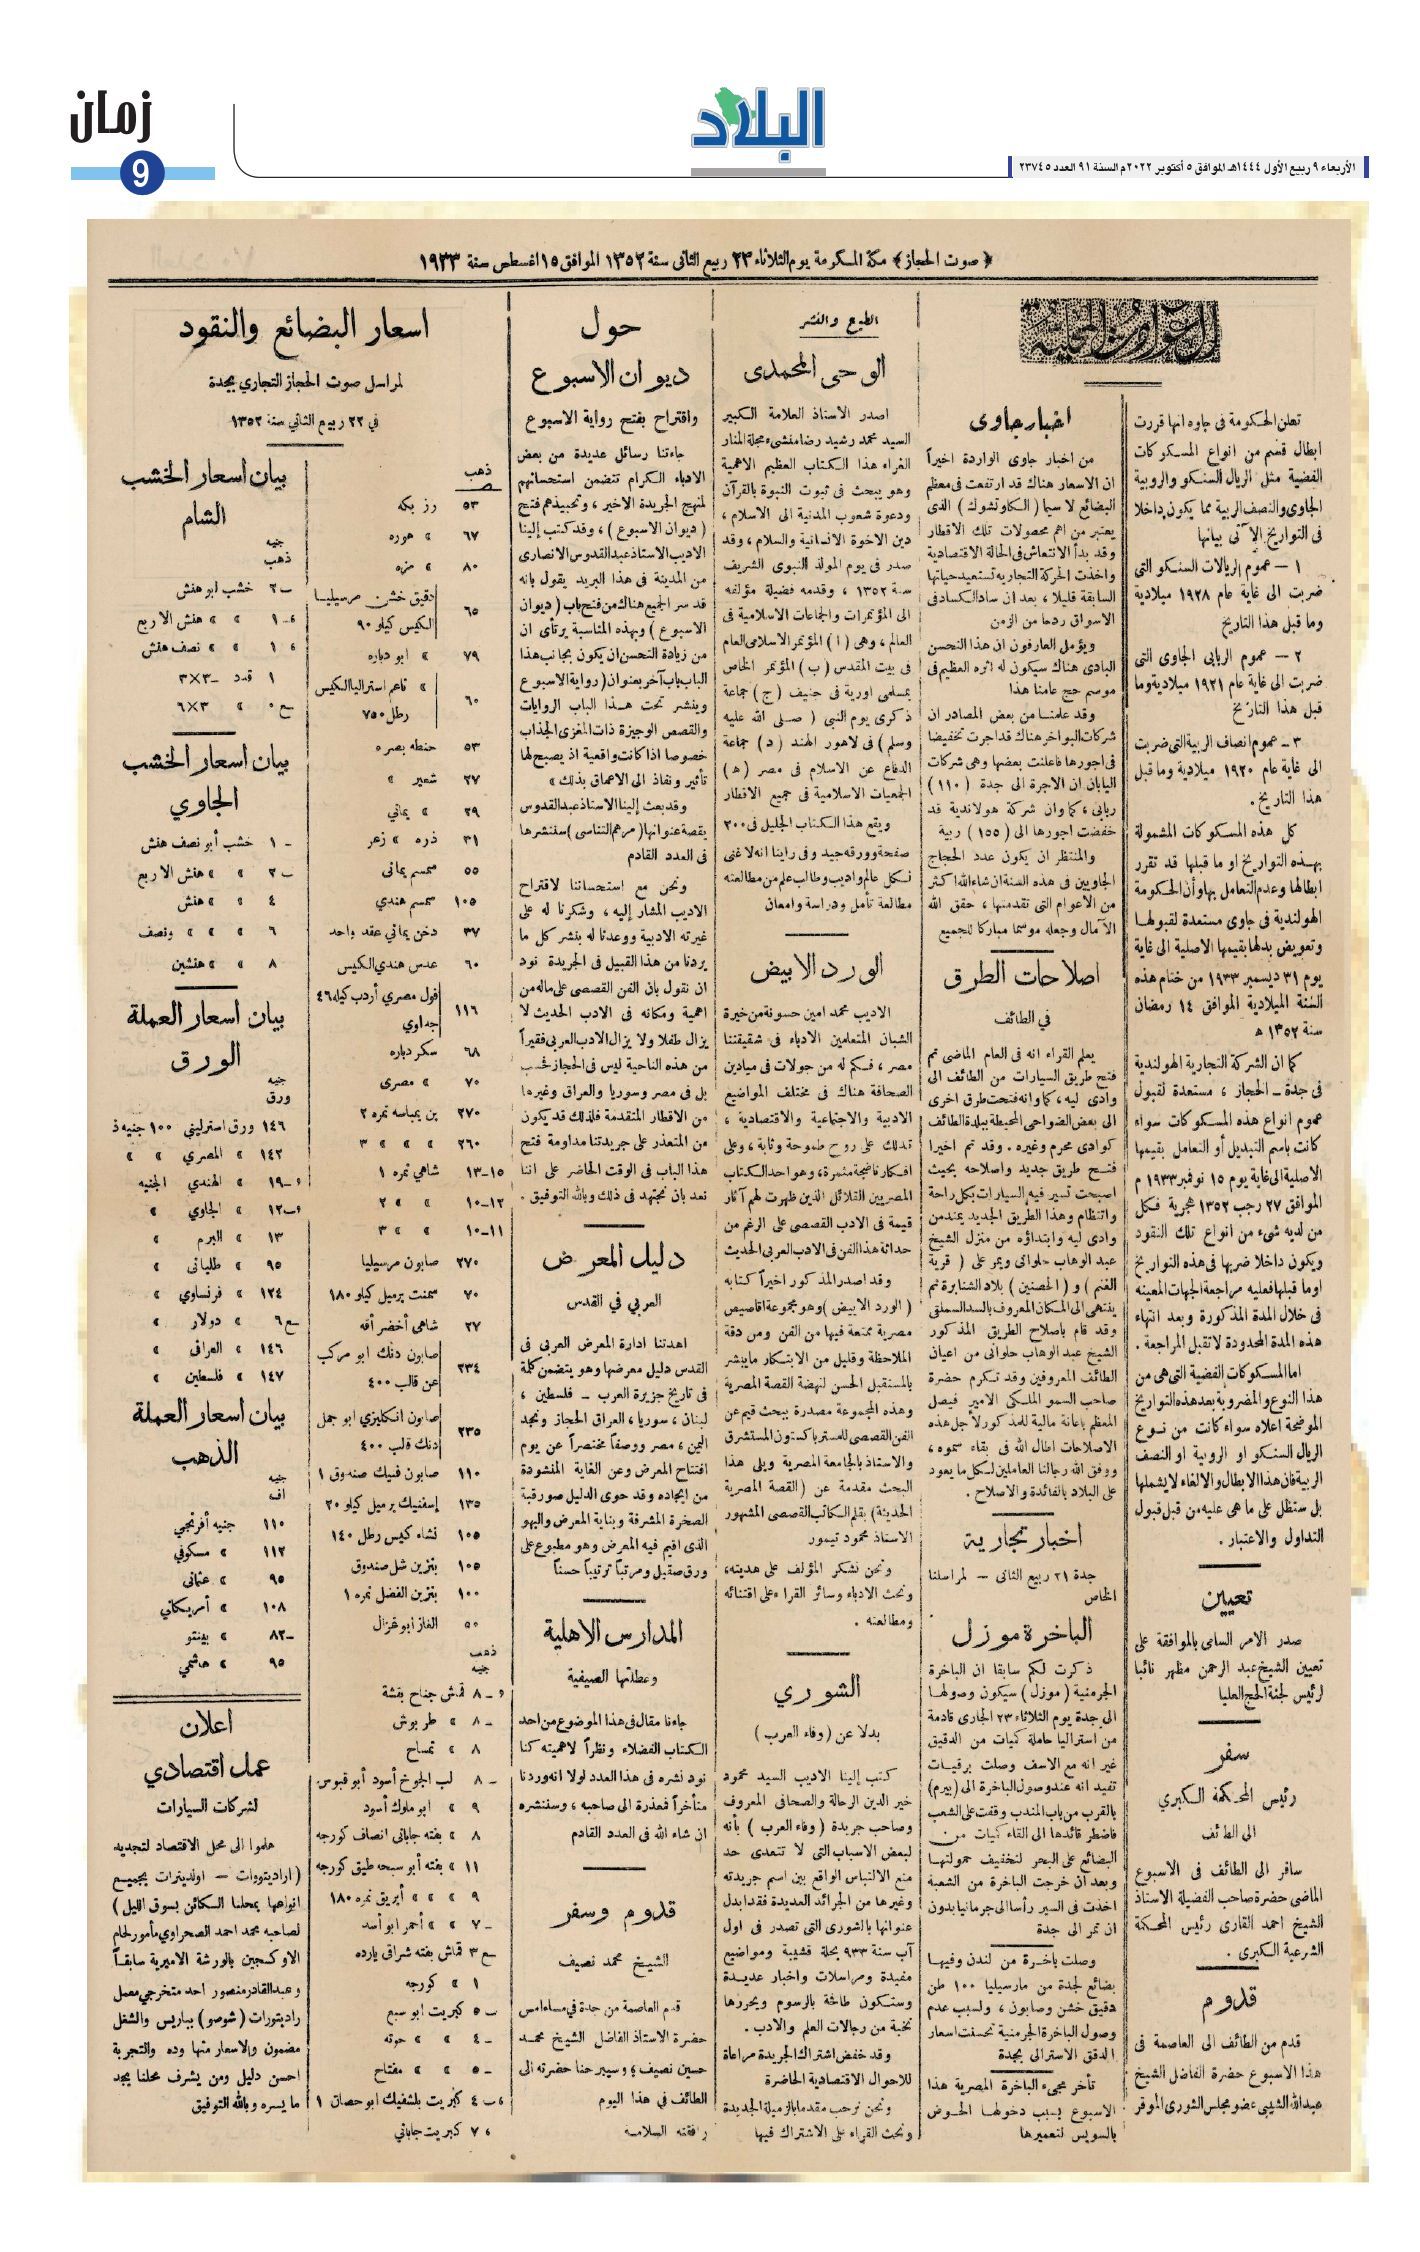 زمان
9
البلاد
الأربعاء ٩ ربيع الأول ١٤٤٤هـ الموافق ٥ أكتوبر ٢٠٢٢م السنة ٩١ العدد ٢٣٧٤٥
﴿ صوت الحجاز ﴾ مكة المكرمة يوم الثلاثاء ٢٣ ربيع الثانى سنة ١٣٥٢ الموافق ١٥ اغسطس سنة ١٩٣٣
الحوادث المحلية
تعلن الحكومة فى جاوه انها قررت
ابطال قسم من انواع المسكوكات
الفضية مثل الريال السنكو والروبية
الجاوى والنصف الربية مما يكون داخلا
فى التواريخ الآتى بيانها
١ — عموم الريالات السنكو التى
ضربت الى غاية عام ١٩٢٨ ميلادية
وما قبل هذا التاريخ
٢ — عموم الربابى الجاوى التى
ضربت الى غاية عام ١٩٢١ ميلادية وما
قبل هذا التاريخ
٣ ـ عموم انصاف الربية التى ضربت
الى غاية عام ١٩٢٠ ميلادية وما قبل
هذا التاريخ .
كل هذه المسكوكات المشمولة
بهذه التواريخ او ما قبلها قد تقرر
ابطالها وعدم التعامل بها وأن الحكومة
الهولندية فى جاوى مستعدة لقبولها
وتعويض بدلها بقيمها الاصلية الى غاية
يوم ٣١ ديسمبر ١٩٣٣ من ختام هذه
السنة الميلادية الموافق ١٤ رمضان
سنة ١٣٥٢ ه
كما ان الشركة التجارية الهولندية
فى جدة ـ الحجاز ، مستعدة لقبول
عموم انواع هذه المسكوكات سواء
كانت باسم التبديل أو التعامل بقيمها
الاصلية الى غاية يوم ١٥ نوفمبر ١٩٣٣ م
الموافق ٢٧ رجب ١٣٥٢ هجرية فكل
من لديه شىء من انواع تلك النقود
ويكون داخلا ضربها فى هذه التواريخ
اوما قبلها فعليه مراجعة الجهات المعينه
فى خلال المدة المذكورة وبعد انتهاء
هذه المدة المحدودة لا تقبل المراجعة .
اما المسكوكات الفضية التى هى من
هذا النوع والمضروبة بعد هذه التواريخ
الموضحة اعلاه سواء كانت من نوع
الريال السنكو او الروبية او النصف
الربية فان هذا الابطال والالغاء لا يشملها
بل ستظل على ما هى عليه من قبل قبول
التداول والاعتبار .
تعيين
صدر الامر السامى بالموافقة على
تعيين الشيخ عبد الرحمن مظهر نائبا
لرئيس لجنة الحج العليا
سفر
رئيس المحكمة الكبرى
الى الطائف
سافر الى الطائف فى الاسبوع
الماضى حضرة صاحب الفضيلة الاستاذ
الشيخ احمد القارى رئيس المحكمة
الشرعية الكبرى .
قدوم
قدم من الطائف الى العاصمة فى
هذا الاسبوع حضرة الفاضل الشيخ
عبد الله الشيبى عضو مجلس الشورى الموقر
اخبار جاوى
من اخبار جاوى الواردة اخيراً
ان الاسعار هناك قد ارتفعت فى معظم
البضائع لا سيما ( الكاوتشوك ) الذى
يعتبر من اهم محصولات تلك الاقطار
وقد بدأ الانتعاش فى الحالة الاقتصادية
واخذت الحركة التجارية تستعيد حياتها
السابقة قليلا ، بعد ان ساد الكساد فى
الاسواق ردحا من الزمن
ويؤمل العارفون ان هذا التحسن
البادى هناك سيكون له اثره العظيم فى
موسم حج عامنا هذا
وقد علمنا من بعض المصادر ان
شركات البواخر هناك قد اجرت تخفيضا
فى اجورها فاعلنت بعضها وهى شركات
اليابان ان الاجرة الى جدة ( ١١٠ )
ربابى ، كما وان شركة هولاندية قد
خفضت اجورها الى ( ١٥٥ ) ربية
والمنتظر ان يكون عدد الحجاج
الجاويين فى هذه السنة ان شاء الله اكثر
من الأعوام التى تقدمتها ، حقق الله
الآمال وجعله موسما مباركا للجميع
اصلاحات الطرق
فى الطائف
يعلم القراء انه فى العام الماضى تم
فتح طريق السيارات من الطائف الى
وادى ليه ، كما وانه فتحت طرق اخرى
الى بعض الضواحى المحيطة ببلدة الطائف
كوادى محرم وغيره . وقد تم اخيرا
فتح طريق جديد واصلاحه بحيث
اصبحت تسير فيه السيارات بكل راحة
وانتظام وهذا الطريق الجديد يمتد من
وادى ليه وابتداؤه من منزل الشيخ
عبد الوهاب حلوانى ويمر على ( قرية
الغنم ) و ( الحصنين ) بلاد الشنابرة ثم
ينتهى الى المكان المعروف بالسد السملقى
وقد قام باصلاح الطريق المذكور
الشيخ عبد الوهاب حلوانى من اعيان
الطائف المعروفين وقد تكرم حضرة
صاحب السمو الملكى الامير فيصل
المعظم باعانة مالية للمذكور لأجل هذه
الاصلاحات اطال الله فى بقاء سموه ،
ووفق الله رجالنا العاملين لكل ما يعود
على البلاد بالفائدة والاصلاح .
اخبار تجارية
جدة ٢١ ربيع الثانى — لمراسلنا
الخاص
الباخرة موزل
ذكرت لكم سابقا ان الباخرة
الجرمنية ( موزل ) سيكون وصولها
الى جدة يوم الثلاثاء ٢٣ الجارى قادمة
من استراليا حاملة كميات من الدقيق
غير انه مع الاسف وصلت برقيات
تفيد انه عند وصول الباخرة الى ( بيرم )
بالقرب من باب المندب وقفت على الشعب
فاضطر قائدها الى القاء كميات من
البضائع على البحر لتخفيف حمولتها
وبعد ان خرجت الباخرة من الشعبة
اخذت فى السير رأسا الى جرمانيا بدون
ان تمر الى جدة
وصلت باخرة من لندن وفيها
بضائع لجدة من مارسيليا ١٠٠ طن
دقيق خشن وصابون ، ولسبب عدم
وصول الباخرة الجرمنية تحسنت اسعار
الدقق الاسترالى بجدة
تأخر مجىء الباخرة المصرية هذا
الاسبوع بسبب دخولها الحوض
بالسويس لتعميرها
الطبع والنشر
الوحى المحمدى
اصدر الاستاذ العلامة الكبير
السيد محمد رشيد رضا منشىء مجلة المنار
الغراء هذا الكتاب العظيم الاهمية
وهو يبحث فى ثبوت النبوة بالقرآن
ودعوة شعوب المدنية الى الاسلام ،
دين الاخوة الانسانية والسلام ، وقد
صدر فى يوم المولد النبوى الشريف
سنة ١٣٥٢ ، وقدمه فضيلة مؤلفه
الى المؤتمرات والجماعات الاسلامية فى
العالم ، وهى ( ا ) المؤتمر الاسلامى العام
فى بيت المقدس ( ب ) المؤتمر الخاص
بمسلمى اوربة فى جنيف ( ج ) جماعة
ذكرى يوم النبى ( صلى الله عليه
وسلم ) فى لاهور الهند ( د ) جماعة
الدفاع عن الاسلام فى مصر ( ه )
الجمعيات الاسلامية فى جميع الاقطار
ويقع هذا الكتاب الجليل فى ٢٠٠
صفحة وورقه جيد وفى راينا انه لا غنى
لكل عالم واديب وطالب علم من مطالعته
مطالعة تأمل ودراسة وامعان
الورد الابيض
الاديب محمد امين حسونة من خيرة
الشبان المتعلمين الادباء فى شقيقتنا
مصر ، فكم له من جولات فى ميادين
الصحافة هناك فى مختلف المواضيع
الادبية والاجتماعية والاقتصادية ،
تدلك على روح طموحة وثابة ، وعلى
افكار ناضجة مثمرة ، وهو احد الكتاب
المصريين القلائل الذين ظهرت لهم آثار
قيمة فى الادب القصصى على الرغم من
حداثة هذا الفن فى الادب العربى الحديث
وقد اصدر المذكور اخيراً كتابه
( الورد الابيض ) وهو مجموعة اقاصيص
مصرية ممتعة فيها من الفن ومن دقة
الملاحظة وقليل من الابتكار ما يبشر
بالمستقبل الحسن لنهضة القصة المصرية
وهذه المجموعة مصدرة ببحث قيم عن
الفن القصصى للمستر باكستون المستشرق
والاستاذ بالجامعة المصرية ويلى هذا
البحث مقدمة عن ( القصة المصرية
الحديثة ) بقلم الكاتب القصصى المشهور
الاستاذ محمود تيمور
ونحن نشكر المؤلف على هديته ،
ونحث الادباء وسائر القراء على اقتنائه
ومطالعته .
الشورى
بدلا عن ( وفاء العرب )
كتب إلينا الاديب السيد محمود
خير الدين الرحالة والصحافى المعروف
وصاحب جريدة ( وفاء العرب ) بأنه
لبعض الاسباب التى لا تتعدى حد
منع الالتباس الواقع بين اسم جريدته
وغيرها من الجرائد العديدة فقد ابدل
عنوانها بالشورى التى تصدر فى اول
آب سنة ٩٣٣ بحلة قشيبة ومواضيع
مفيدة ومراسلات واخبار عديدة
وستكون طافحة بالرسوم ويحررها
نخبة من رجالات العلم والادب .
وقد خفض اشتراك الجريدة مراعاة
للاحوال الاقتصادية الحاضرة
ونحن نرحب مقدما بالزميلة الجديدة
ونحث القراء على الاشتراك فيها
حول
ديوان الاسبوع
واقتراح بفتح رواية الاسبوع
جاءتنا رسائل عديدة من بعض
الادباء الكرام تتضمن استحسانهم
لمنهج الجريدة الاخير ، وتحبيذهم فتح
( ديوان الاسبوع ) ، وقد كتب إلينا
الاديب الاستاذ عبد القدوس الانصارى
من المدينة فى هذا البريد يقول بانه
قد سر الجميع هناك من فتح باب ( ديوان
الاسبوع ) وبهذه المناسبة يرتأى ان
من زيادة التحسن ان يكون بجانب هذا
الباب باب آخر بعنوان ( رواية الاسبوع
وينشر تحت هذا الباب الروايات
والقصص الوجيزة ذات المغزى الجذاب
خصوصا اذا كانت واقعية اذ يصبح لها
تأثير ونفاذ الى الاعماق بذلك »
وقد بعث إلينا الاستاذ عبد القدوس
بقصة عنوانها ( مرهم التناسى ) سننشرها
فى العدد القادم
ونحن مع استحساننا لاقتراح
الاديب المشار إليه ، وشكرنا له على
غيرته الادبية ووعدنا له بنشر كل ما
يردنا من هذا القبيل فى الجريدة نود
ان نقول بان الفن القصصى على ماله من
اهمية ومكانه فى الادب الحديث لا
يزال طفلا ولا يزال الادب العربى فقيراً
من هذه الناحية ليس فى الحجاز فحسب
بل فى مصر وسوريا والعراق وغيرها
من الاقطار المتقدمة فلذلك قد يكون
من المتعذر على جريدتنا مداومة فتح
هذا الباب فى الوقت الحاضر على اننا
نعد بان نجتهد فى ذلك وبالله التوفيق .
دليل المعرض
العربي في القدس
اهدتنا ادارة المعرض العربى فى
القدس دليل معرضها وهو يتضمن كلمة
فى تاريخ جزيرة العرب — فلسطين ،
لبنان ، سوريا ، العراق الحجاز ونجد
اليمن ، مصر ووصفاً مختصراً عن يوم
افتتاح المعرض وعن الغاية المنشودة
من ايجاده وقد حوى الدليل صورقبة
الصخرة المشرفة وبناية المعرض والبهو
الذى اقيم فيه المعرض وهو مطبوع على
ورق صقيل ومرتباً ترتيباً حسناً
المدارس الاهلية
وعطلتها الصيفية
جاءنا مقال فى هذا الموضوع من احد
الكتاب الفضلاء ونظراً لاهميته كنا
نود نشره فى هذا العدد لولا انه وردنا
متأخراً فمعذرة الى صاحبه ، وسننشره
ان شاء الله فى العدد القادم
قدوم وسفر
الشيخ محمد نصيف
قدم العاصمة من جدة فى مساء امس
حضرة الاستاذ الفاضل الشيخ محمد
حسين نصيف ، وسيبرحنا حضرته الى
الطائف في هذا اليوم
رافقته السلامة
اسعار البضائع والنقود
لمراسل صوت الحجاز التجاري بجدة
في ٢٢ ربيع الثاني سنة ١٣٥٢
ذهب
٥٣ رز بكه
٦٧ » هوره
٨٠ » مزه
٦٥ دقيق خشن مرسيليا
الكيس كيلو ٩٠
٧٩ » ابو دباره
٦٠ » ناعم استراليا الكيس
رطل ٧٥٠
٥٣ حنطه بصره
٢٧ شعير »
٢٩ » يماني
٣١ ذره » زعر
٥٥ سمسم يمانى
١٠٥ سمسم هندي
٣٧ دخن يماني عقد واحد
٦٠ عدس هندي الكيس
١١٦ فول مصري أردب كيله ٤٦
جداوي
٦٨ سكر دباره
٧٠ » مصرى
٢٧٠ بن يمباسه نمره ٢
٢٦٠ » » » ٣
١٥-١٣ شاهي نمره ١
١٢-١٠ » » ٢
١١-١٠ » » ٣
٢٧٠ صابون مرسيليا
٧٠ سمنت برميل كيلو ١٨٠
٢٧ شاهى أخضر أقه
٢٣٤ صابون دنك ابو مركب
عن قالب ٤٠٠
٢٣٥ صابون انكليزي ابو جمل
دنك قلب ٤٠٠
١١٠ صابون فنيك صندوق ١
١٣٥ إسفنيك برميل كيلو ٢٠
١٠٥ نشاء كيس رطل ١٤٠
١٠٥ بنزين شل صندوق
١٠٠ بنزين الفضل نمره ١
٥٠ الغاز ابو غزال
ذهب
جنيه
٨ قماش جناح بفشة
٨ » طربوش
٨ » تمساح
٨ لب الجوخ أسود أبو قبوس
٩ » ابو ملوك أسود
٨ » بفته جاباني انصاف كورجه
١١ » بفته أبو سبحه طبق كورجه
٩ » » أبريق نمره ١٨٠
٧ » أحمر ابو أسد
٣ قماش بفته شراقى يارده
١ » كورجه
٥ كبريت ابو سبع
٤ » » حوته
٥ » » مفتاح
٤ كبريت بلشفيك ابو حصان ١
٧ كبريت جاباني
بيان أسعار الخشب
الشام
جنيه
ذهب
٢ خشب ابو هنش
١ » » هنش الا ربع
١ » » نصف هنش
١ قدد ٣×٣
٠ » ٣×٦
بيان أسعار الخشب
الجاوي
١ خشب أبو نصف هنش
٢ » » هنش الا ربع
٤ » » هنش
٦ » » » ونصف
٨ » » هنشين
بيان أسعار العملة
الورق
جنيه
ورق
١٤٦ ورق استرليني ١٠٠ جنيه ذ
١٤٢ » المصري » »
١٩ » الهندي الجنيه
١٢ » الجاوي »
١٣ » البرم »
٩٥ » طليانى »
١٢٤ » فرنساوي »
٦ » دولار »
١٤٦ » العراقى »
١٤٧ » فلسطين »
بيان أسعار العملة
الذهب
جنيه
اف
١١٠ جنيه أفرنجي
١١٢ » مسكوفي
٩٥ » عثمانى
١٠٨ » أمريكاني
٨٢ » بينتو
٩٥ » هاشمي
اعلان
عمل اقتصادي
لشركات السيارات
هلموا الى محل الاقتصاد لتجديد
( اراديتورات — اولديترات بجميع
انواهها بمحلنا الكائن بسوق الليل )
لصاحبه محمد احمد الصحراوي مأمور لحام
الاوكسجين بالورشة الاميرية سابقاً
وعبد القادر منصور احد متخرجي معمل
راديتورات ( شوصو ) بباريس والشغل
مضمون والاسعار متهاوده والتجربة
احسن دليل ومن يشرف محلنا يجد
ما يسره وبالله التوفيق